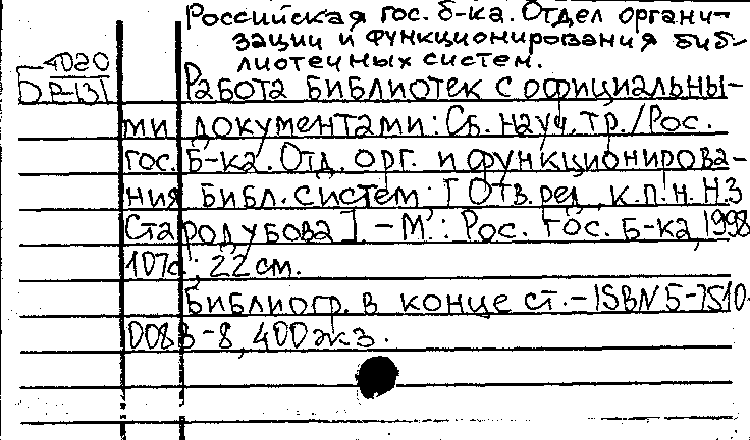 Российская гос. б-ка. Отдел органи-
зации и функционирования биб-
лиотечных систем.
Работа библиотек с официальны-
ми документами: Сб. науч. тр./Рос.
гос. Б-ка. Отд. орг. и функционирова-
ния библ. систем: [Отв. ред. к.п.н. Н.З
Стародубова]. - М.: Рос. гос. Б-ка, 1998
107с; 22 см.
Библиогр. в конце ст. - ISBN 5-7510-
0083-8, 400 экз.